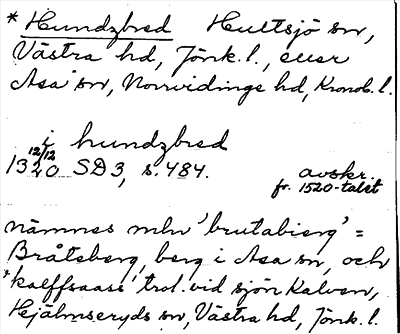 * Hundzbred Hultsjö sn,
Västra hd, Jönk. l., eller
Asa sn, Norrvidinge hd, Kronob. l.
i hundzbred
1320 12/12 SD3, s. 484. avskr.
fr. 1520-talet
nämnes mln 'brutabierg' =
Bråteberg, berg i Asa sn, och
*'kalffsaas' trol. vid sjön Kalven,
Hjälmseryds sn, Västra hd, Jönk. l.